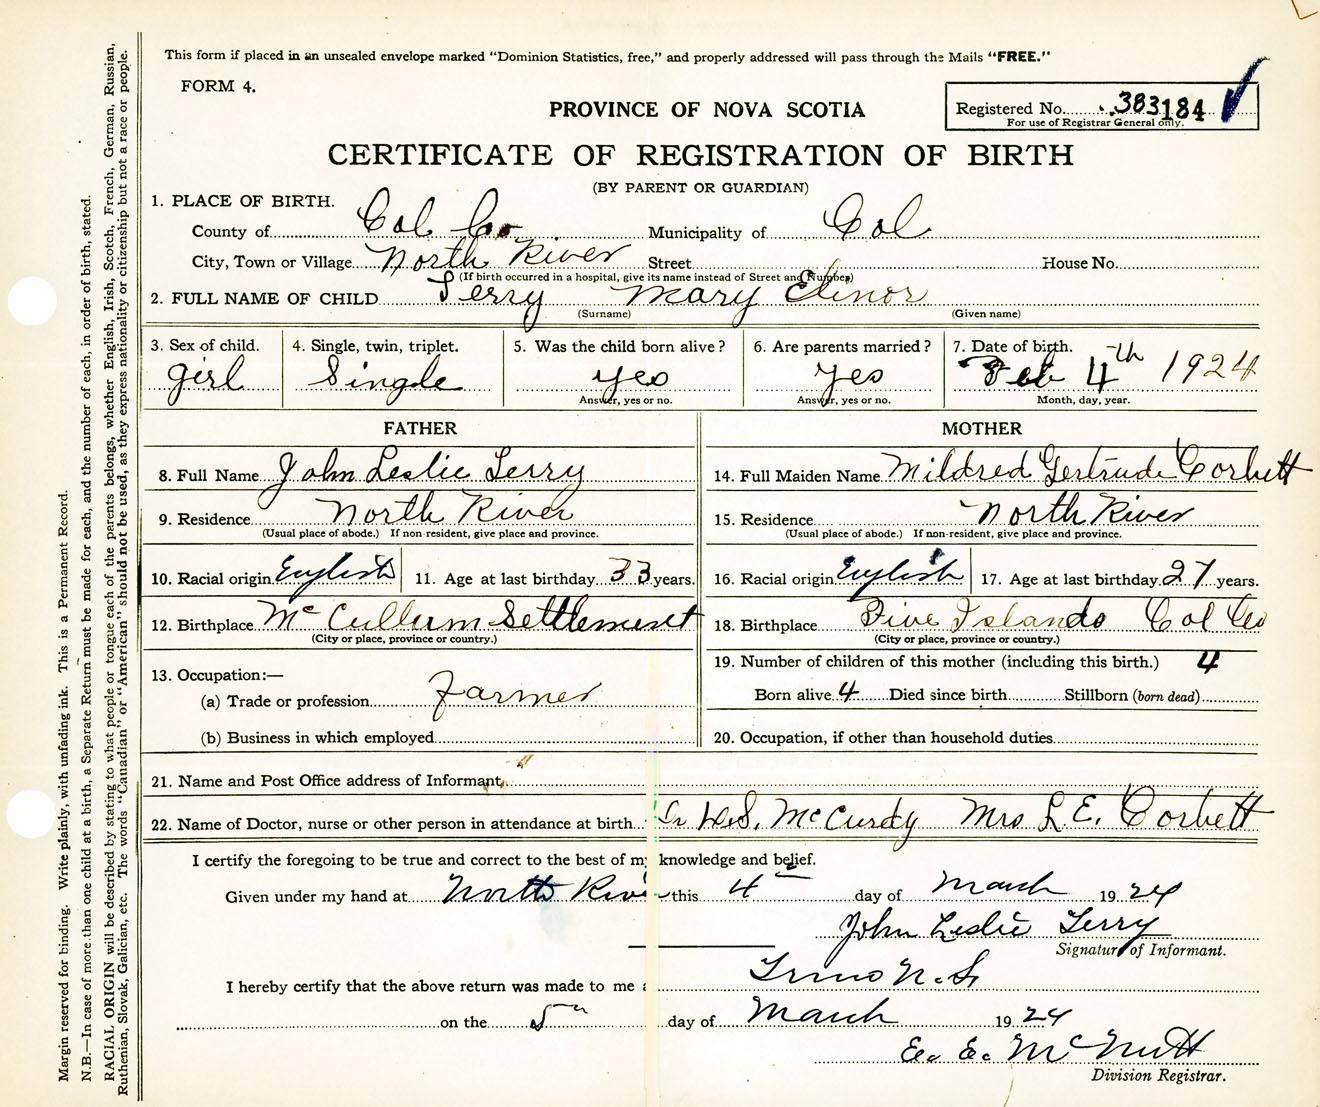 This form if placed in an unsealed envelope marked "Dominion Statistics, free," and properly addressed will pass through the Mails "FREE."
FORM 4.
PROVINCE OF NOVA SCOTIA
Registered No. 383184
For use of Registrar General only.
CERTIFICATE OF REGISTRATION OF BIRTH
(BY PARENT OR GUARDIAN)
1. PLACE OF BIRTH.
County of Col Co Municipality of Col
City, Town or Village North River Street House No.
(If birth occurred in a hospital, give its name instead of Street and Number)
2. FULL NAME OF CHILD Terry Mary Elinor
(Surname) (Given name)
3. Sex of child. 4. Single, twin, triplet. 5. Was the child born alive? 6. Are parents married? 7. Date of birth.
girl Single yes yes Feb 4th 1924
Answer, yes or no. Answer, yes or no. Month, day, year.
FATHER MOTHER
8. Full Name John Leslie Terry 14. Full Maiden Name Mildred Gertrude Corbett
9. Residence North River 15. Residence North River
(Usual place of abode.) If non-resident, give place and province. (Usual place of abode.) If non-resident, give place and province.
10. Racial origin English 11. Age at last birthday 33 years. 16. Racial origin English 17. Age at last birthday 27 years.
12. Birthplace McCullum Settlement 18. Birthplace Five Islands Col Co
(City or place, province or country.) (City or place, province or country.)
13. Occupation:— 19. Number of children of this mother (including this birth.) 4
(a) Trade or profession Farmer Born alive 4 Died since birth Stillborn (born dead)
(b) Business in which employed 20. Occupation, if other than household duties
21. Name and Post Office address of Informant
22. Name of Doctor, nurse or other person in attendance at birth Dr H.S. McCurdy Mrs L.E. Corbett
I certify the foregoing to be true and correct to the best of my knowledge and belief.
Given under my hand at North River this 4th day of March 1924
John Leslie Terry
Signature of Informant.
Truro N.S.
I hereby certify that the above return was made to me
on the 5th day of March 1924
E. E. McNutt
Division Registrar.
Margin reserved for binding. Write plainly, with unfading ink. This is a Permanent Record.
N.B.—In case of more than one child at a birth, a Separate Return must be made for each, and the number of each, in order of birth, stated.
RACIAL ORIGIN will be described by stating to what people or tongue each of the parents belongs, whether English, Irish, Scotch, French, German, Russian,
Ruthenian, Slovak, Galician, etc. The words "Canadian" or "American" should not be used, as they express nationality or citizenship but not a race or people.